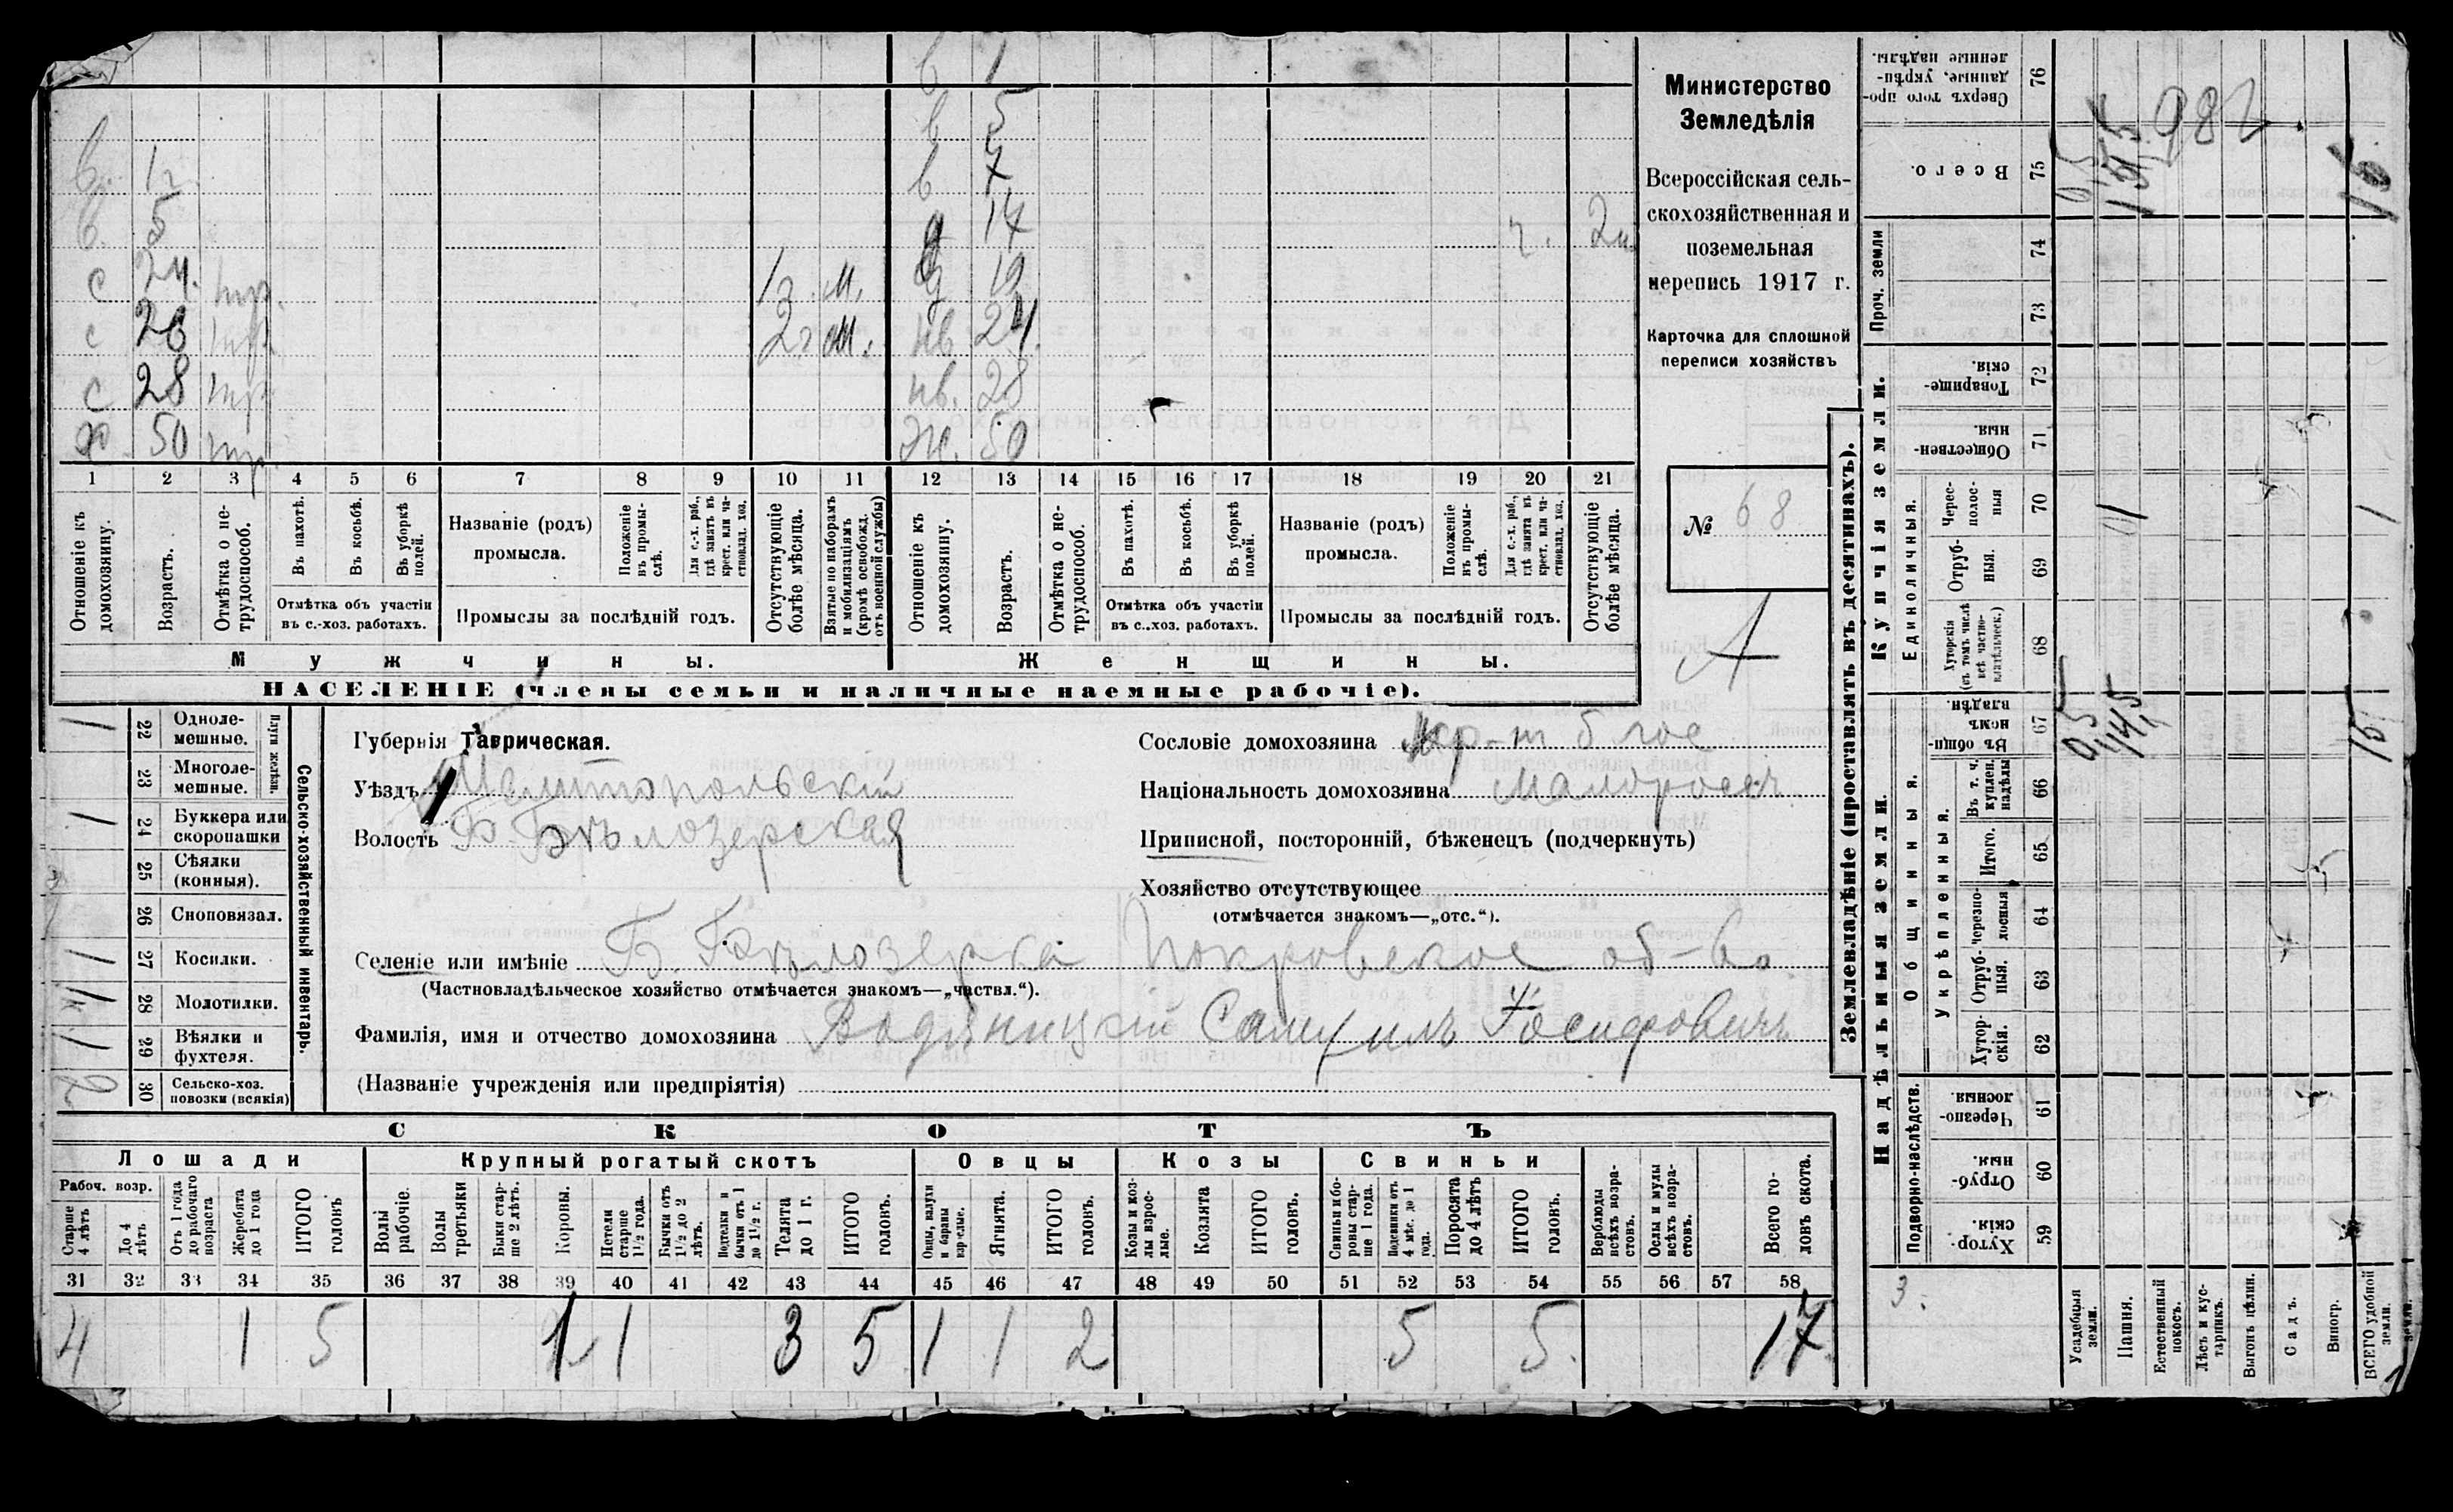 в 1
в 5
в. 1 г. в 7
в. 5 д 17 г. 2 м
с 24. нтр. 1 г. м. д 19
с 26 нтр. 2 г м. нв 24
с 28 нтр нв. 28
х 50 нтр. Ж. 50
1 2 3 4 5 6 7 8 9 10 11 12 13 14 15 16 17 18 19 20 21
Отношеніе къ домохозяину.
Возрастъ.
Отмѣтка о нетрудоспособ.
Въ пахотѣ.
Въ косьбѣ.
Въ уборкѣ полей.
Отмѣтка объ участіи
въ с.-хоз. работахъ.
Названіе (родъ)
промысла.
Положеніе въ промыслѣ.
Для с.-х. раб., гдѣ занятъ въ крест. или частновлад. хоз.
Промыслы за послѣдній годъ.
Отсутствующіе болѣе мѣсяца.
Взятые по наборамъ и мобилизаціямъ (кромѣ освобожд. отъ военной службы)
Отношеніе къ домохозяину.
Возрастъ.
Отмѣтка о нетрудоспособ.
Въ пахотѣ.
Въ косьбѣ.
Въ уборкѣ полей.
Отмѣтка объ участіи
въ с..хоз. работахъ.
Названіе (родъ)
промысла.
Положеніе въ промыслѣ.
Для с.-х. раб., гдѣ занята въ крест. или частновлад. хоз.
Промыслы за послѣдній годъ.
Отсутствующіе болѣе мѣсяца.
Мужчины. Женщины.
НАСЕЛЕНІЕ (члены семьи и наличные наемные рабочіе).
Министерство
Земледѣлія
Всероссійская сель-
скохозяйственная и
поземельная
перепись 1917 г.
Карточка для сплошной
переписи хозяйствъ
№ 68
А
Сельско-хозяйственный инвентарь.
Плуги желѣзн.
1 22 Однолемешные.
23 Многолемешные.
1 24 Буккера или скоропашки
25 Сѣялки (конныя).
26 Сноповязал.
1 27 Косилки.
28 Молотилки.
1 29 Вѣялки и фухтеля.
2 30 Сельско-хоз. повозки (всякія)
Губернія Таврическая.
Уѣздъ Мелитопольскій
Волость Б. Бѣлозерская
Сословіе домохозяина
Національность домохозяина Малоросс.
Приписной, посторонній, бѣженецъ (подчеркнуть)
Хозяйство отсутствующее
(отмѣчается знакомъ—„отс.“).
Селеніе или имѣніе Б. Бѣлозерка Покровское об-во
(Частновладѣльческое хозяйство отмѣчается знакомъ—„частвл.“).
Фамилія, имя и отчество домохозяина Водяницкій Самуилъ Іосифовичъ
(Названіе учрежденія или предпріятія)
СКОТЪ
Лошади Крупный рогатый скотъ Овцы Козы Свиньи
Рабоч. возр.
Старше 4 лѣтъ
До 4 лѣтъ
Отъ 1 года до рабочаго возраста
Жеребята до 1 года
ИТОГО головъ
Волы рабочіе.
Волы третьяки
Быки старше 2 лѣтъ.
Коровы.
Нетели старше 1½ года.
Бычки отъ 1½ до 2 лѣтъ.
Подтелки и бычки отъ 1 до 1½ г.
Телята до 1 г.
ИТОГО головъ.
Овцы, валухи и бараны взрослые.
Ягнята.
ИТОГО головъ.
Козы и козлы взрослые.
Козлята
ИТОГО головъ.
Свиньи и боровы старше 1 года.
Подсвинки отъ 4 мѣс. до 1 года.
Поросята до 4 лѣтъ
ИТОГО головъ.
Верблюды всѣхъ возрастовъ.
Ослы и мулы всѣхъ возрастовъ.
Всего головъ скота.
31 32 33 34 35 36 37 38 39 40 41 42 43 44 45 46 47 48 49 50 51 52 53 54 55 56 57 58
4 1 5 1 1 3 5 1 1 2 5 5. 17
Землевладѣніе (проставлять въ десятинахъ).
Надѣльныя земли. Купчія земли.
Подворно-наслѣдств.
Общинныя.
Укрѣпленныя.
Единоличныя.
Проч. земли
Хуторскія. 59
Отрубныя. 60
Черезполосныя. 61
Хуторскія. 62
Отрубныя. 63
Черезполосныя 64
Итого. 65
Въ т. ч. куплен. надѣлы 66
Въ общинномъ владѣн. 67
Хуторскія (въ томъ числѣ всѣ частновладѣльческ.) 68
Отрубныя. 69
Черезполосныя 70
Общественныя. 71
Товарищескія. 72
73
74
Всего. 75
Сверхъ того проданные, укрѣпленные надѣлы. 76
3.
Усадебныя земли.
Пашня.
Естественный покосъ.
Лѣсъ и кустарникъ.
Выгонъ цѣлин.
Садъ.
Виногр.
ВСЕГО удобной земли.
0,5
14,5
15
1
0,5
982
16